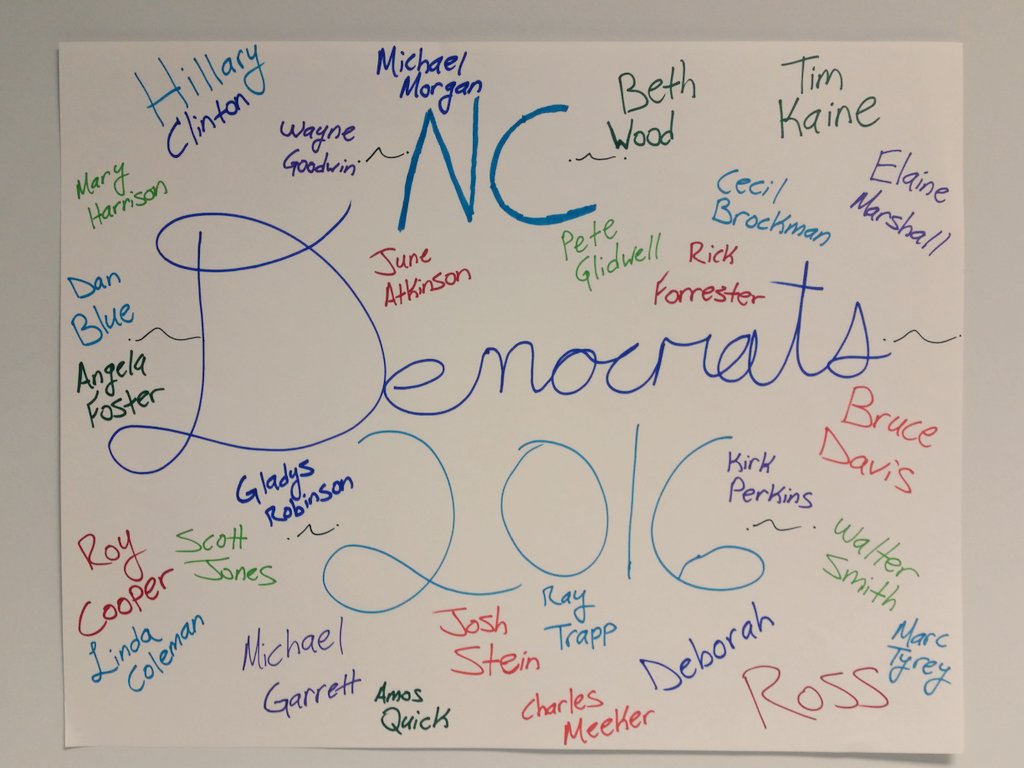 Hillary
Clinton
Michael
Morgan
Wayne
Goodwin
NC
Beth
Wood
Tim
Kaine
Mary
Harrison
Cecil
Brockman
Elaine
Marshall
June
Atkinson
Pete
Glidwell
Rick
Forrester
Dan
Blue
Angela
Foster
Democrats
Bruce
Davis
2016
Gladys
Robinson
Kirk
Perkins
Roy
Cooper
Scott
Jones
Walter
Smith
Linda
Coleman
Michael
Garrett
Amos
Quick
Josh
Stein
Ray
Trapp
Charles
Meeker
Deborah
Ross
Marc
Tyrey